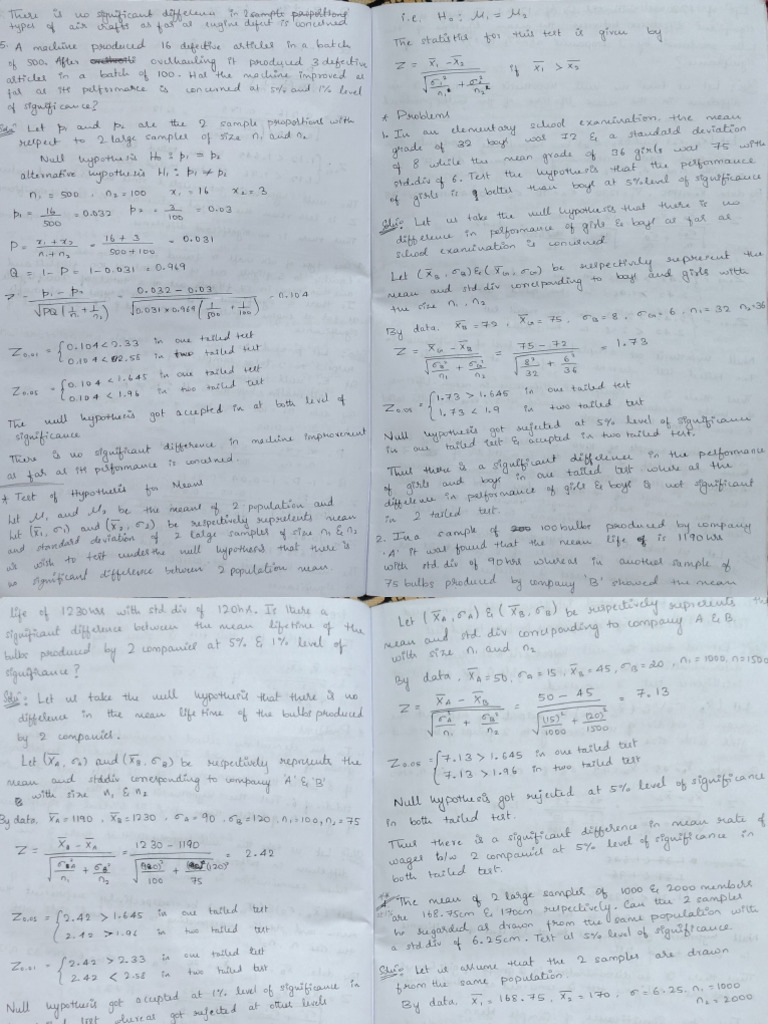 There is no significant difference in 2 sample proportions
types of air crafts as far as engine defect is concerned
5. A machine produced 16 defective articles in a batch
of 500. After overhauling it produced 3 defective
articles in a batch of 100. Has the machine improved as
far as its performance is concerned at 5% and 1% level
of significance?
Soln: Let p1 and p2 are the 2 sample proportions with
respect to 2 large samples of size n1 and n2.
Null hypothesis H0 : p1 = p2
alternative hypothesis H1 : p1 ≠ p2
n1 = 500 , n2 = 100 x1 = 16 x2 = 3
p1 = 16/500 = 0.032 p2 = 3/100 = 0.03
P = (x1 + x2)/(n1 + n2) = (16 + 3)/(500 + 100) = 0.031
Q = 1 - P = 1 - 0.031 = 0.969
Z = (p1 - p2)/√(PQ(1/n1 + 1/n2)) = (0.032 - 0.03)/√(0.031 × 0.969(1/500 + 1/100)) = 0.104
Z0.01 = { 0.104 < 2.33 in one tailed test
0.104 < 2.58 in two tailed test
Z0.05 = { 0.104 < 1.645 in one tailed test
0.104 < 1.96 in two tailed test
The null hypothesis got accepted in at both level of
significance
There is no significant difference in machine improvement
as far as its performance is concerned.
* Test of Hypothesis for Means
Let M1 and M2 be the means of 2 population and
let (x̄1, σ1) and (x̄2, σ2) be respectively represents mean
and standard deviation of 2 large samples of size n1 & n2
we wish to test under the null hypothesis that there is
no significant difference between 2 population mean.
i.e. H0 : M1 = M2
The statistic for this test is given by
Z = (x̄1 - x̄2)/√(σ1²/n1 + σ2²/n2) if x̄1 > x̄2
* Problems
1. In an elementary school examination the mean
grade of 32 boys was 72 & a standard deviation
of 8 while the mean grade of 36 girls was 75 with
std.div of 6. Test the hypothesis that the performance
of girls is better than boys at 5% level of significance
Soln: Let us take the null hypothesis that there is no
difference in performance of girls & boys as far as
school examination is concerned
Let (x̄B, σB) & (x̄G, σG) be respectively represent the
mean and std.div corresponding to boys and girls with
the size n1, n2
By data, x̄B = 72, x̄G = 75, σB = 8, σG = 6, n1 = 32 n2 = 36
Z = (x̄G - x̄B)/√(σB²/n1 + σG²/n2) = (75 - 72)/√(8²/32 + 6²/36) = 1.73
Z0.05 = { 1.73 > 1.645 in one tailed test
1.73 < 1.9 in two tailed test
Null hypothesis got rejected at 5% level of significance
in one tailed test & accepted in two tailed test.
Thus there is a significant difference in the performance
of girls and boys in one tailed test where as the
difference in performance of girls & boys is not significant
in 2 tailed test.
2. In a sample of 100 bulbs produced by company
'A' it was found that the mean life of is 1190 hrs
with std div of 90 hrs whereas in another sample of
75 bulbs produced by company 'B' showed the mean
life of 1230 hrs with std div of 120 hr. Is there a
significant difference between the mean lifetime of the
bulbs produced by 2 companies at 5% & 1% level of
significance?
Soln: Let us take the null hypothesis that there is no
difference in the mean life time of the bulbs produced
by 2 companies.
Let (x̄A, σA) and (x̄B, σB) be respectively represents the
mean and std div corresponding to company 'A' & 'B'
with size n1 & n2
By data, x̄A = 1190, x̄B = 1230, σA = 90, σB = 120, n1 = 100, n2 = 75
Z = (x̄B - x̄A)/√(σA²/n1 + σB²/n2) = (1230 - 1190)/√((90)²/100 + (120)²/75) = 2.42
Z0.05 = { 2.42 > 1.645 in one tailed test
2.42 > 1.96 in two tailed test
Z0.01 = { 2.42 > 2.33 in one tailed test
2.42 < 2.58 in two tailed test
Null hypothesis got accepted at 1% level of significance in
tailed test whereas got rejected at other levels
Let (x̄A, σA) & (x̄B, σB) be respectively represents the
mean and std. div corresponding to company A & B.
with size n1 and n2
By data, x̄A = 50, σA = 15, x̄B = 45, σB = 20, n1 = 1000, n = 1500
Z = (x̄A - x̄B)/√(σA²/n1 + σB²/n2) = (50 - 45)/√((15)²/1000 + (20)²/1500) = 7.13
Z0.05 = { 7.13 > 1.645 in one tailed test
7.13 > 1.96 in two tailed test
Null hypothesis got rejected at 5% level of significance
in both tailed test.
Thus there is a significant difference in mean rate of
wages b/w 2 companies at 5% level of significance in
both tailed test.
4. The mean of 2 large samples of 1000 & 2000 members
are 168.75cm & 170cm respectively. Can the 2 samples
be regarded as drawn from the same population with
a std div of 6.25cm. Test at 5% level of significance
Soln: Let us assume that the 2 samples are drawn
from the same population.
By data, x̄1 = 168.75, x̄2 = 170, σ = 6.25, n1 = 1000
n2 = 2000